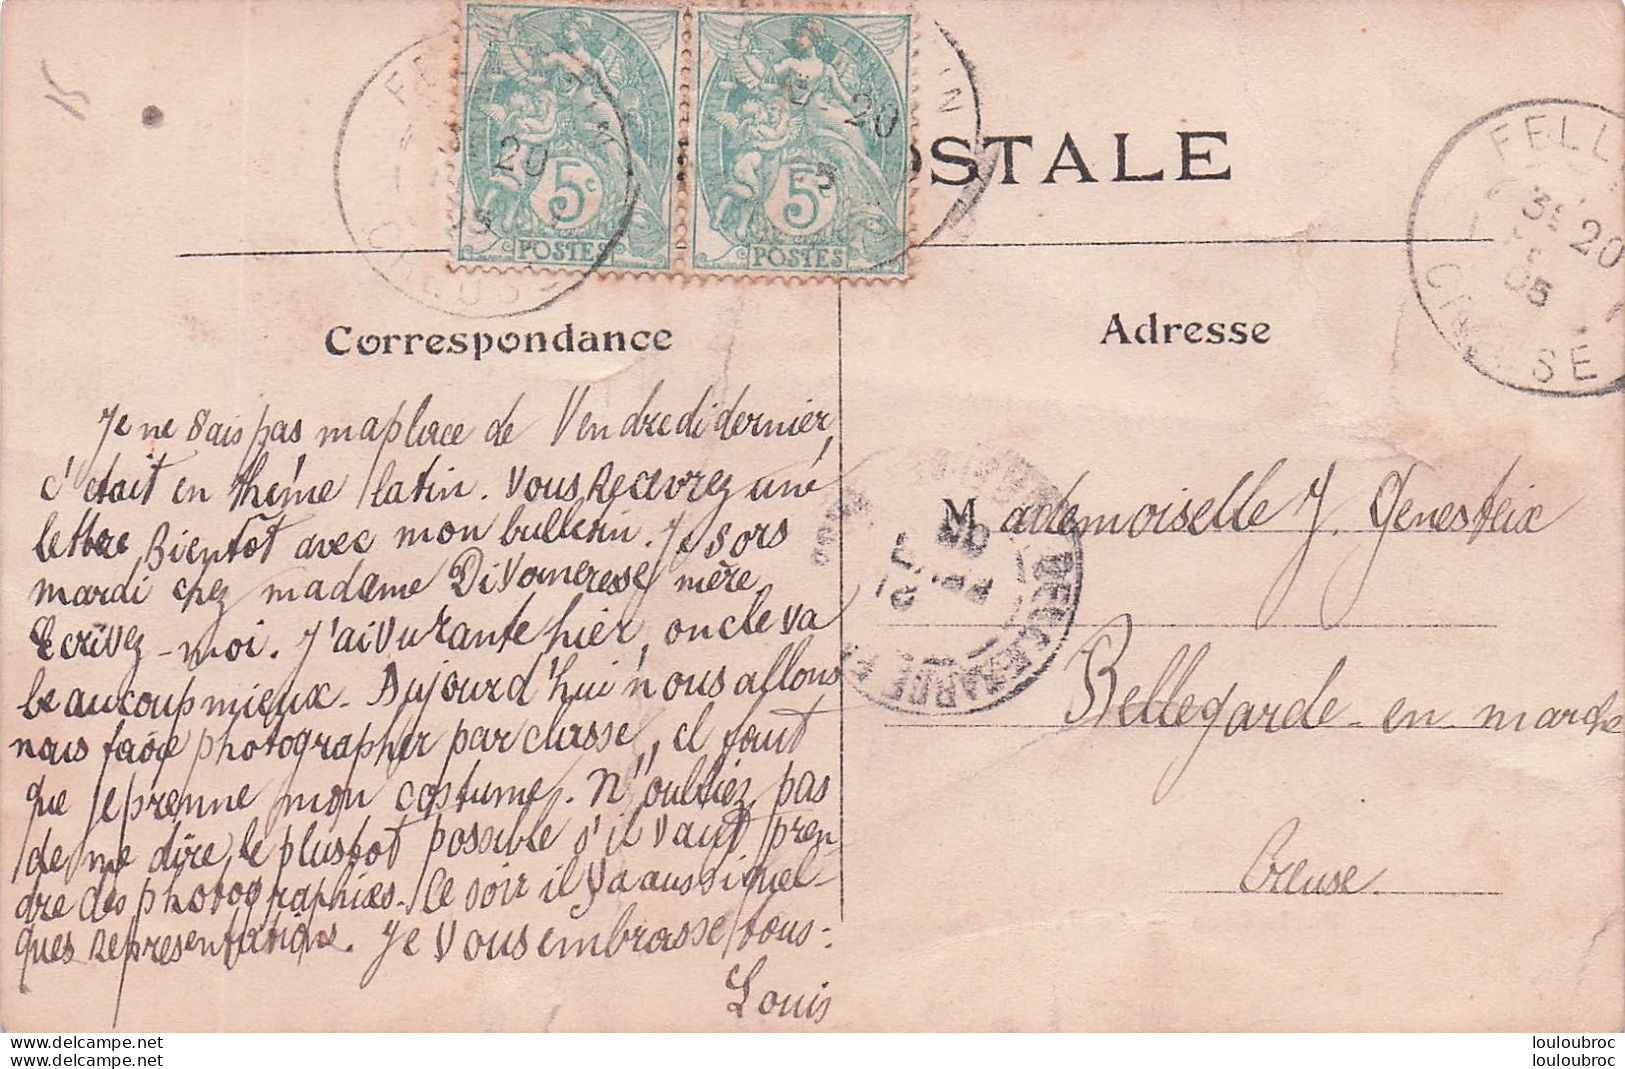 15
OSTALE
5c
POSTES
5c
POSTES
FELLETIN
20
CREUSE
20
05
FELL
31 20
05
CREUSE
Correspondance
Adresse
Je ne sais pas ma place de Vendredi dernier,
c'etait en thême latin. Vous Recevrez une
lettre Bientôt avec mon bulletin. Je sors
mardi chez madame Divorneresse, mère
Ecrivez-moi. J'ai vu tante hier, oncle va
beaucoup mieux. Aujourd'hui nous allons
nous faire photographer par classe, il faut
que je prenne mon costume. N'oubliez pas
de me dire le plustot possible s'il vaut pren-
dre des photographies. Ce soir il y a aussi quel-
ques representations. Je Vous embrasse tous.
Louis
Mademoiselle J. Genesteix
Bellegarde-en marche
Creuse.
BELLEGARDE
louloubroc
louloubroc